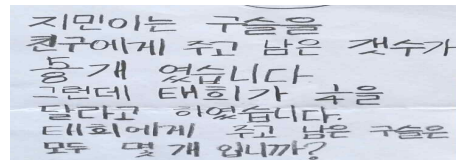 지민이는 구슬을
친구에게 주고 남은 갯수가
5/8개 였습니다
그런데 태희가 1/4을
달라고 하였습니다.
태희에게 주고 남은 구슬은
모두 몇 개 입니까?